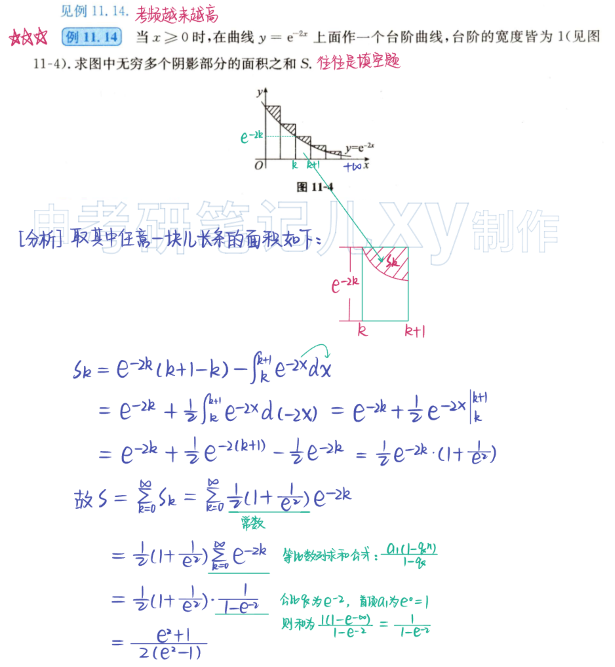 见例 11.14. 考频越来越高
☆☆☆ 例 11.14 当 x ⩾ 0 时,在曲线 y = e^{-2x} 上面作一个台阶曲线,台阶的宽度皆为 1(见图
11-4).求图中无穷多个阴影部分的面积之和 S. 往往是填空题
y
e^{-2k}
y=e^{-2x}
O k k+1 +∞ x
图 11-4
中考研笔记儿xy制作
[分析] 取其中任意一块儿长条的面积如下:
Sk
e^{-2k}
k k+1
Sk = e^{-2k}(k+1-k) - ∫_k^{k+1} e^{-2x}dx
= e^{-2k} + 1/2 ∫_k^{k+1} e^{-2x} d(-2x) = e^{-2k} + 1/2 e^{-2x} |_k^{k+1}
= e^{-2k} + 1/2 e^{-2(k+1)} - 1/2 e^{-2k} = 1/2 e^{-2k}·(1+1/e²)
故 S = ∑_{k=0}^{∞} Sk = ∑_{k=0}^{∞} 1/2(1+1/e²)e^{-2k}
常数
= 1/2(1+1/e²) ∑_{k=0}^{∞} e^{-2k} 等比数列求和公式: a₁(1-qⁿ)/(1-q)
= 1/2(1+1/e²)· 1/(1-e^{-2}) 公比q为e^{-2}, 首项a₁为e⁰=1
则和为 1(1-e^{-∞})/(1-e^{-2}) = 1/(1-e^{-2})
= (e²+1)/(2(e²-1))